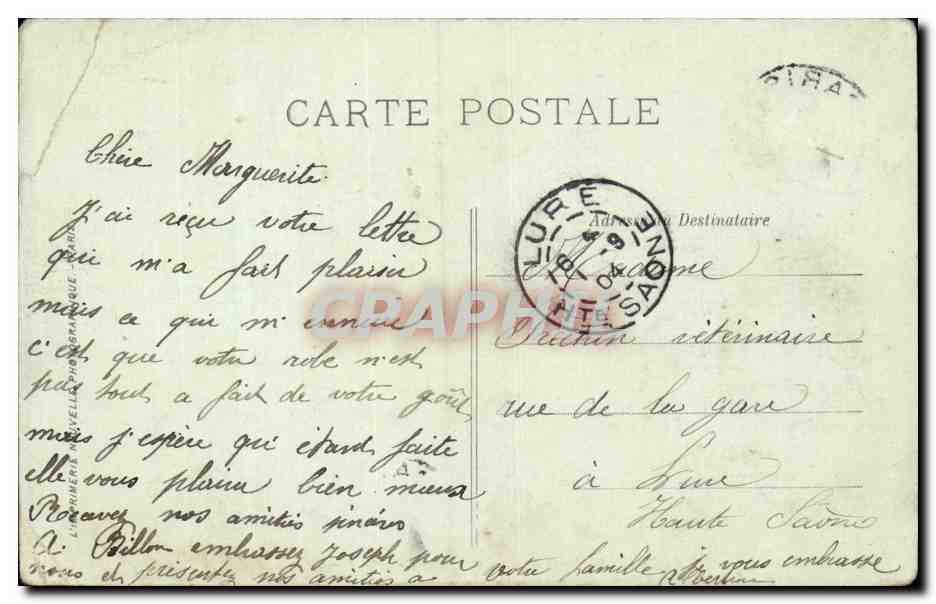 CARTE POSTALE
Chère Marguerite.
J'ai reçu votre lettre
qui m'a fait plaisir
mais ce qui m'ennuie
c'est que votre robe n'est
pas tout a fait de votre goût
mais j'espère qu'étant faite
elle vous plaira bien mieux
Recevez nos amitiés sincères
A. Billon embrassez Joseph pour
nous et présentez nos amitiés a
votre famille je vous embrasse
Adresse du Destinataire
Madame
vétérinaire
rue de la gare
à Lure
Haute Saône
LURE
HTE SAÔNE
04
L'IMPRIMERIE NOUVELLE PHOTOGRAPHIQUE - PARIS
CRAPHIL